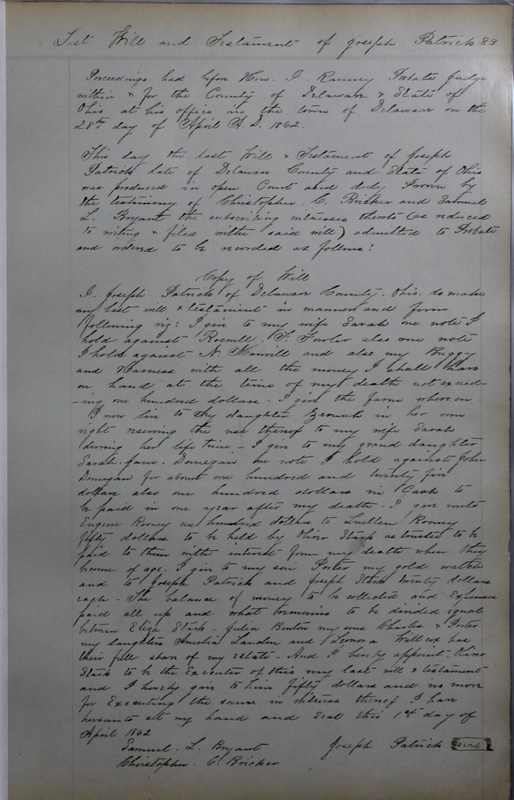 Last Will and Testament of Joseph Patrick 83
Proceedings had before Hon. T. Ranney Probate Judge
within & for the County of Delaware & State of
Ohio at his office in the town of Delaware on the
28th day of April A.D. 1862.
This day the last Will & Testament of Joseph
Patrick late of Delaware County and State of Ohio
was produced in open Court and duly proven by
the testimony of Christopher. C. Bricker and Samuel
L. Bryant the subscribing witnesses thereto (as reduced
to writing & filed with said will) admitted to Probate
and ordered to be recorded as follows!
Copy of Will
I. Joseph Patrick of Delaware County. Ohio. do make
my last will & testament in manner and form
following viz: I give to my wife Sarah one note I
hold against F. Fowler also one note
I hold against N. and also my Buggy
and Harness with all the money I shall have
on hand at the time of my death not exceed-
-ing one hundred dollars - I give the farm where on
I now live to my daughter in her own
right reserving the use thereof to my wife Sarah
during her life time - I give to my grand daughter
Sarah Jane. Donegan the note I hold against John
Donegan for about one hundred and twenty five
dollars also one hundred dollars in Cash to
be paid in one year after my death - I give unto
Eugene Rooney one hundred dollars to Luellen Rooney
fifty dollars to be held by Oliver Stark as trustee to be
paid to them with interest from my death when they
become of age. I give to my son Porter my gold watch
and to Joseph Patrick and Joseph Stark twenty dollars
each - The balance of money to be collected and Expenses
paid all up and what remains to be divided equal
between Eliza Stark - Julia my sons Charles & Porter
my daughters Amelia and Leonora have
their full share of my estate - And I hereby appoint Oliver
Stark to be the Executor of this my last will & testament
and I hereby give to him fifty dollars and no more
for Executing the same in witness thereof I have
hereunto set my hand and seal this 1st day of
April 1862
Samuel. L. Bryant Joseph Patrick seal
Christopher C. Bricker